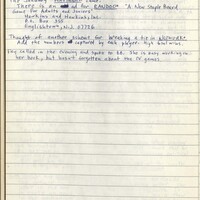 There is an ad for BALDOS "A New Staple Board
Game for Adults and Juniors"
Hawkins and Hawkins, Inc.
P.O. Box 355
Englishtown, N.J. 07726
Thought of another scheme for breaking a tie in
Add the numbers captured by each player. High total wins.
called in the evening and spoke to He is busy working on
her book, but hasn't forgotten about the games